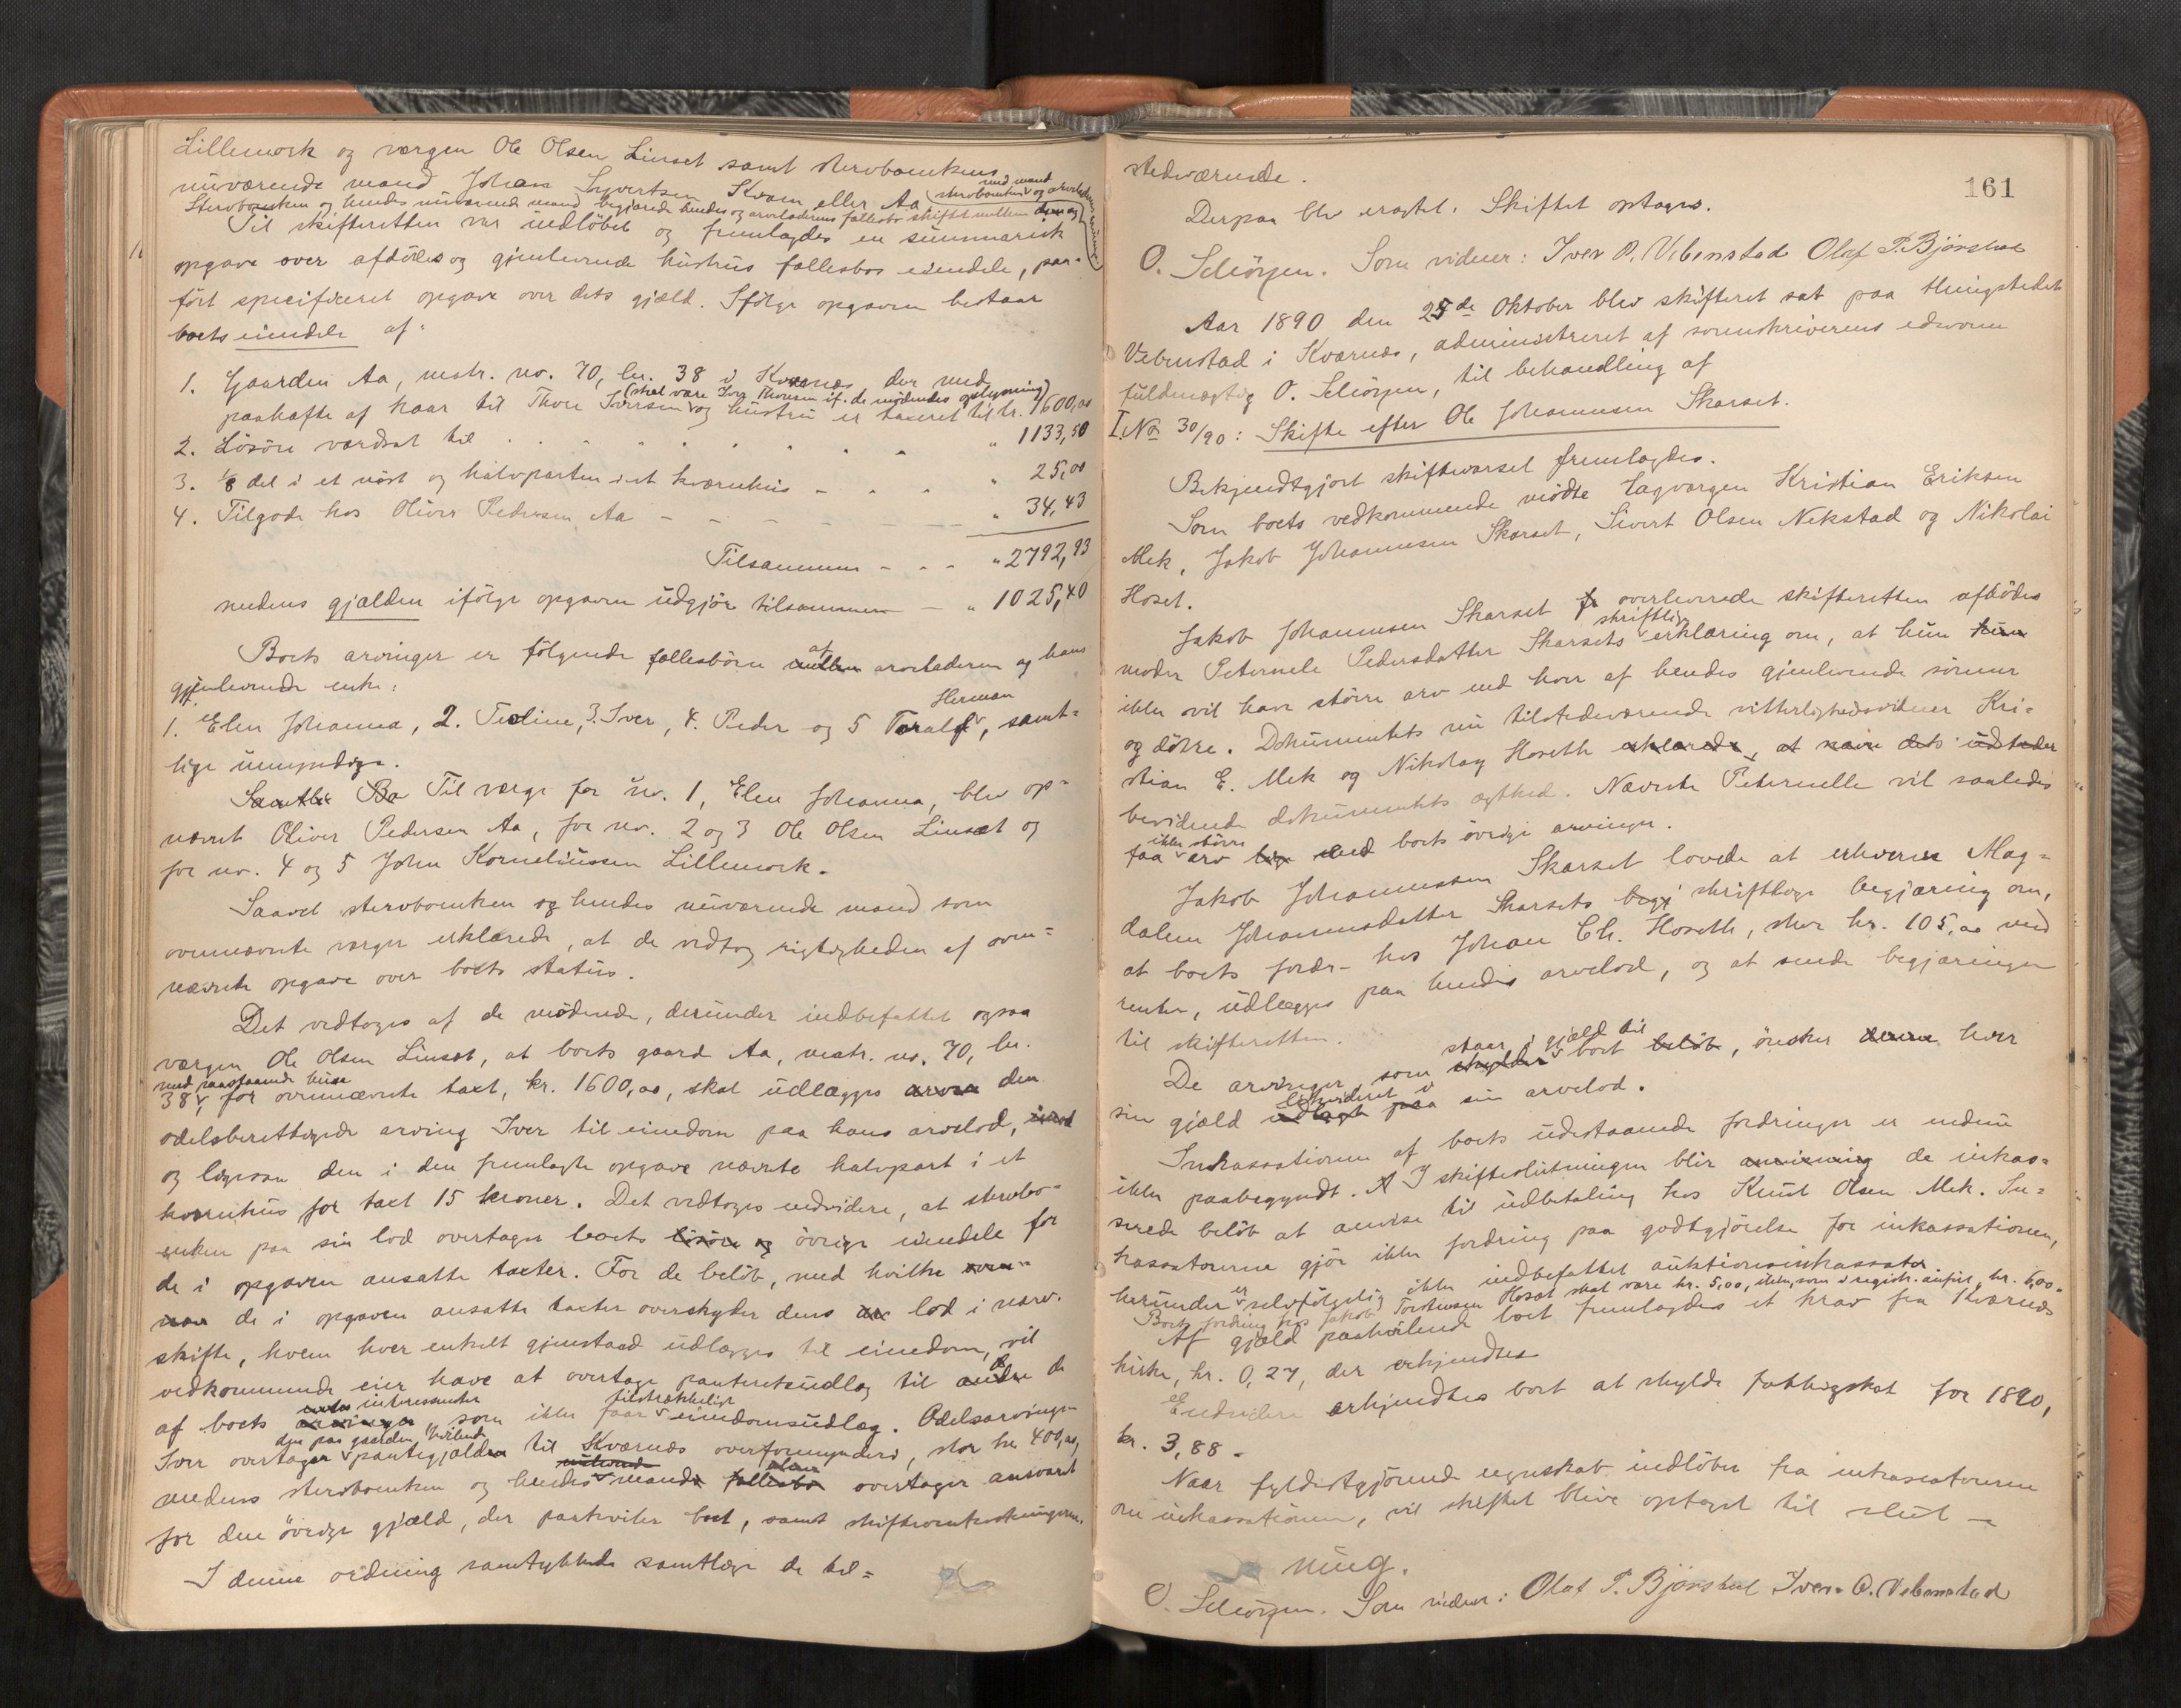 Lillemork og værgen Ole Olsen Linset samt stervboenkens
nuværende mand Johan Syvertsen Kvam eller Aa.
Stervboenken og hendes nuværende mand begjærede hendes og arveladerens fællesbo skiftet mellem stervboenken med mand og arveladerens arvinger.
Til skifteretten var indløbet og fremlagdes en summarisk
opgave over afdødes og gjenlevende hustrus fællesbos eiendele, paa-
ført specificeret opgave over dets gjæld. Ifølge opgaven bestaar
boets eiendele af:
1. Gaarden Aa, matr. no. 70, br. 38 i Kvernes der med
paahefte af kaar til Thore Iversen (skal være Iver Thoresen if. de mødendes oplysning) og hustru er taxeret til kr. 1600,00
2. Løsøre værdsat til " 1133,50
3. 1/8 del i et nøst og halvparten i et kvernhus - - - " 25,00
4. Tilgode hos Oliver Pedersen Aa - - - - - - " 34,43
Tilsammen - - - " 2792,93
medens gjælden ifølge opgaven udgjør tilsammen - " 1025,40
Boets arvinger er følgende fællesbørn af arveladeren og hans
gjenlevende enke:
1. Elen Johanna, 2. Teoline, 3. Iver, 4. Peder og 5 Toralf Herman, samt-
lige umyndige.
Til værge for no. 1, Elen Johanna, blev op-
nævnt Oliver Pedersen Aa, for no. 2 og 3 Ole Olsen Linset og
for no. 4 og 5 John Korneliussen Lillemork.
Saavel stervboenken og hendes nuværende mand som
ovennævnte værger erklærede, at de vedtog rigtigheden af oven-
nævnte opgave over boets status.
Det vedtoges af de mødende, derunder indbefattet ogsaa
værgen Ole Olsen Linset, at boets gaard Aa, matr. no. 70, br.
38, med paastaaende huse for ovennævnte taxt, kr. 1600,00, skal udlægges den
odelsberettigede arving Iver til eiendom paa hans arvelod,
og ligesaa den i den fremlagte opgave nævnte halvpart i et
kvernhus for taxt 15 kroner. Det vedtoges endvidere, at stervbo-
enken paa sin lod overtager boets øvrige eiendele for
de i opgaven ansatte taxter. For de beløb, med hvilke
de i opgaven ansatte taxter overskyder dens lod i nærv.
skifte, hvem hver enkelt gjenstand udlægges til eiendom, vil
vedkommende eier have at overtage panteretsudlæg til de
af boets interessenter, som ikke faar tilstrækkeligt eiendomsudlæg. Odelsarvingen
Iver overtager den paa gaarden hvilende pantegjæld til Kværnes overformynderi, stor kr. 400,00,
medens stervboenken og hendes mand overtager ansvaret
for den øvrige gjæld, der paahviler boet, samt skifteomkostningerne.
I denne ordning samtykkede samtlige de til-
161
stedværende.
Derpaa blev eragtet: Skiftet optages.
O. Schiörgen. Som vidner: Iver O. Vebenstad Olaf P. Bjørstad
Aar 1890 den 25de Oktober blev skifteret sat paa thingstedet
Vebenstad i Kværnes, administreret af sorenskriverens edsvorne
fuldmægtig O. Schiörgen, til behandling af
I. No 30/90: Skifte efter Ole Johannesen Skarset.
Bekjendtgjort skiftevarsel fremlagdes.
Som boets vedkommende mødte lagværgen Kristian Eriksen
Mek, Jakob Johannesen Skarset, Sivert Olsen Nekstad og Nikolai
Hoset.
Jakob Johannesen Skarset overleverede skifteretten afdødes
moder Peternele Pedersdatter Skarsets skriftlige erklæring om, at hun
ikke vil have større arv end hver af hendes gjenlevende sønner
og døtre. Dokumentets nu tilstedeværende vitterlighedsvidner Kri-
stian E. Mek og Nikolay Hoseth erklærede, at navn dets udsteder
bevidnede dokumentets ægthed. Nævnte Peternelle vil saaledes
faa ikke større arv end boets øvrige arvinger.
Jakob Johannessen Skarset lovede at erhverve Mag-
dalene Johannesdatter Skarsets skriftlige begjæring om,
at boets fordr- hos Johan Ch. Hoseth, stor kr. 105,00 med
renter, udlægges paa hendes arvelod, og at sende begjæringen
til skifteretten.
De arvinger, som staar i gjæld til boet, ønsker hver
sin gjæld likvideret i sin arvelod.
Inkassationen af boets udestaaende fordringer er endnu
ikke paabegyndt. I skifteslutningen blir de inkas-
serede beløb at anvise til udbetaling hos Knut Olsen Mek. In-
kassatorerne gjør ikke fordring paa godtgjørelse for inkassationen,
herunder er selvfølgelig ikke indbefattet auktionsinkassator.
Boets fordring hos Jakob Torstensen Hoset skal være kr. 5,00, ikke, som i registr. anført, kr. 6,00.
Af gjæld paahvilende boet fremlagdes et krav fra Kværnes
kirke, kr. 0,27, der erkjendtes
Endvidere erkjendtes boet at skylde fattigskat for 1890,
kr. 3,88.
Naar fyldestgjørende regnskab indløber fra inkassatorerne
om inkassationen, vil skiftet blive optaget til slut-
ning.
O. Schiörgen. Som vidner: Olaf P. Bjørstad Iver O. Vebenstad